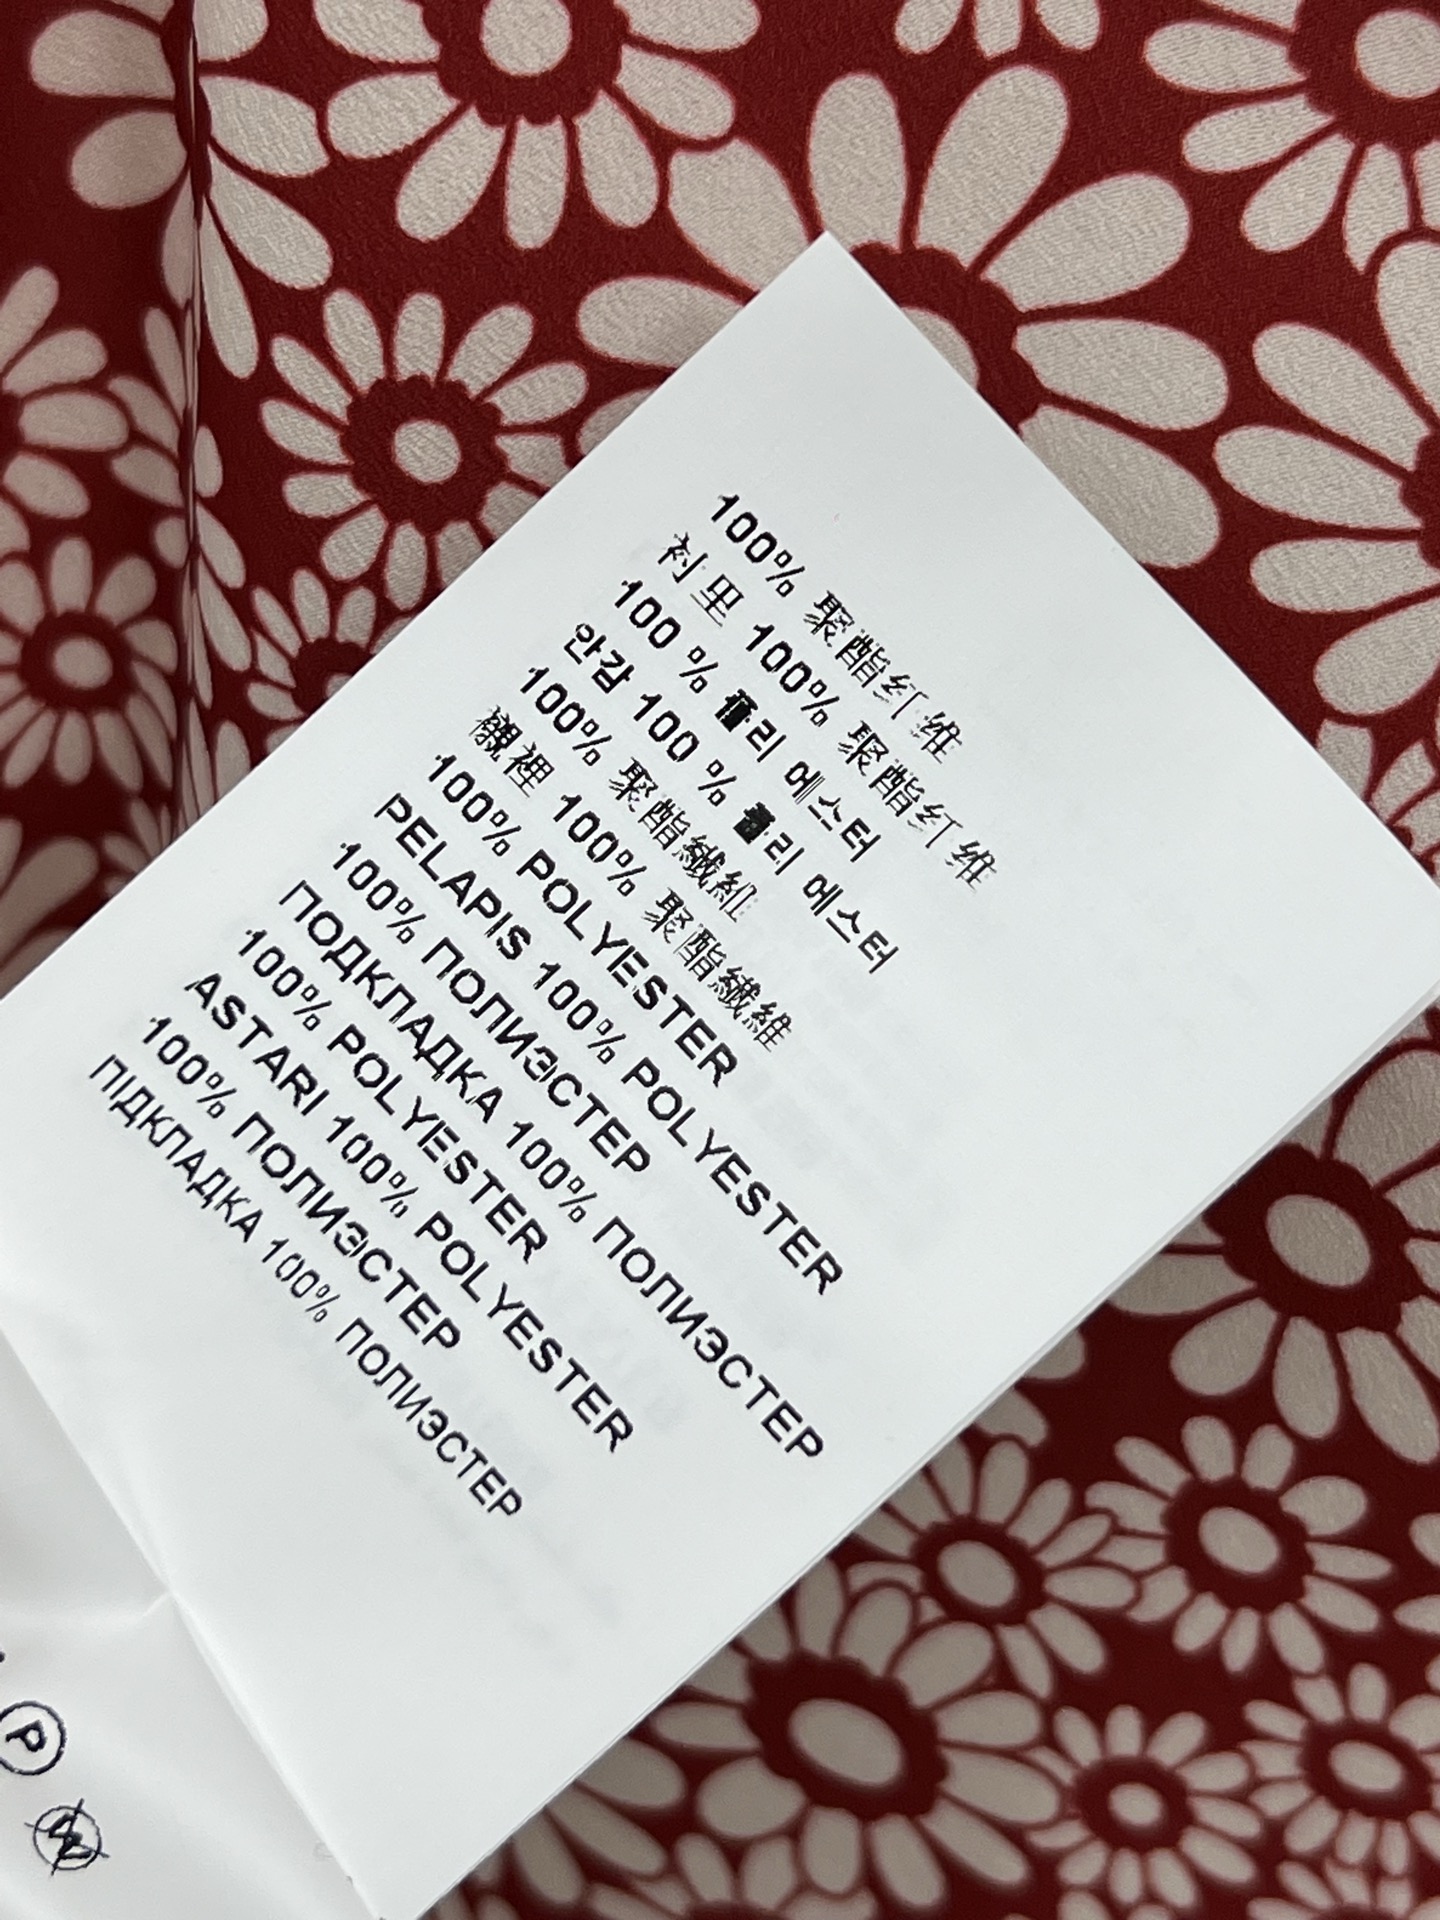 100% 聚酯纤维
衬里 100% 聚酯纤维
100 % 폴리 에스터
안감 100 % 폴리 에스터
100% 聚酯纖維
襯裡 100% 聚酯纖維
100% POLYESTER
PELAPIS 100% POLYESTER
100% ПОЛИЭСТЕР
ПОДКЛАДКА 100% ПОЛИЭСТЕР
100% POLYESTER
ASTARI 100% POLYESTER
100% ПОЛИЭСТЕР
ПІДКЛАДКА 100% ПОЛИЭСТЕР
P
W